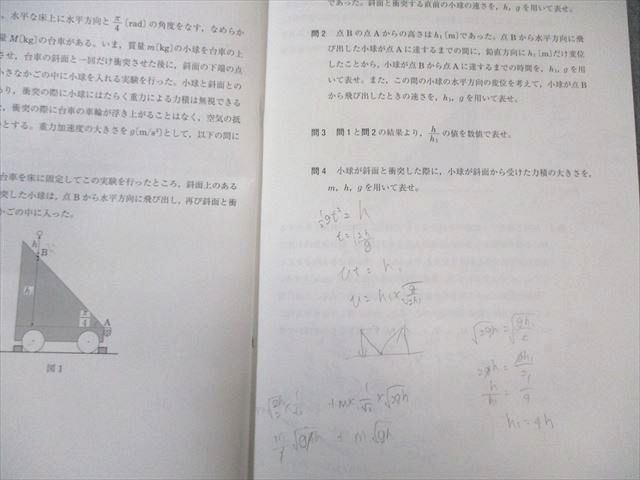 、水平な床上に水平方向と π/4 〔rad〕の角度をなす，なめらか
量 M〔kg〕の台車がある。いま，質量 m〔kg〕の小球を台車の上
させ，台車の斜面と一回だけ衝突させた後に，斜面の下端の点
小さなかごの中に小球を入れる実験を行った。小球と斜面との
あり，衝突の際に小球にはたらく重力による力積は無視できる
た，衝突の際に台車の車輪が浮き上がることはなく，空気の抵
のとする。重力加速度の大きさを g〔m/s²〕として，以下の問に
台車を床に固定してこの実験を行ったところ，斜面上のある
突した小球は，点 B から水平方向に飛び出し，再び斜面と衝
かごの中に入った。
h
B
h₁
π/4
A
図1
であった。斜面と衝突する直前の小球の速さを，h，g を用いて表せ。
問2 点 B の点 A からの高さは h₁〔m〕であった。点 B から水平方向に飛
び出した小球が点 A に達するまでの間に，鉛直方向に h₁〔m〕だけ変位
したことから，小球が点 B から点 A に達するまでの時間を，h₁，g を用
いて表せ。また，この間の小球の水平方向の変位を考えて，小球が点 B
から飛び出したときの速さを，h₁，g を用いて表せ。
問3 問1と問2の結果より，h/h₁ の値を数値で表せ。
問4 小球が斜面と衝突した際に，小球が斜面から受けた力積の大きさを，
m，h，g を用いて表せ。
½gt² = h
t = √2h/g
vt = h₁
v = h₁ × √g/2h₁
√2gh = √gh₁/2
h₁ = 4h